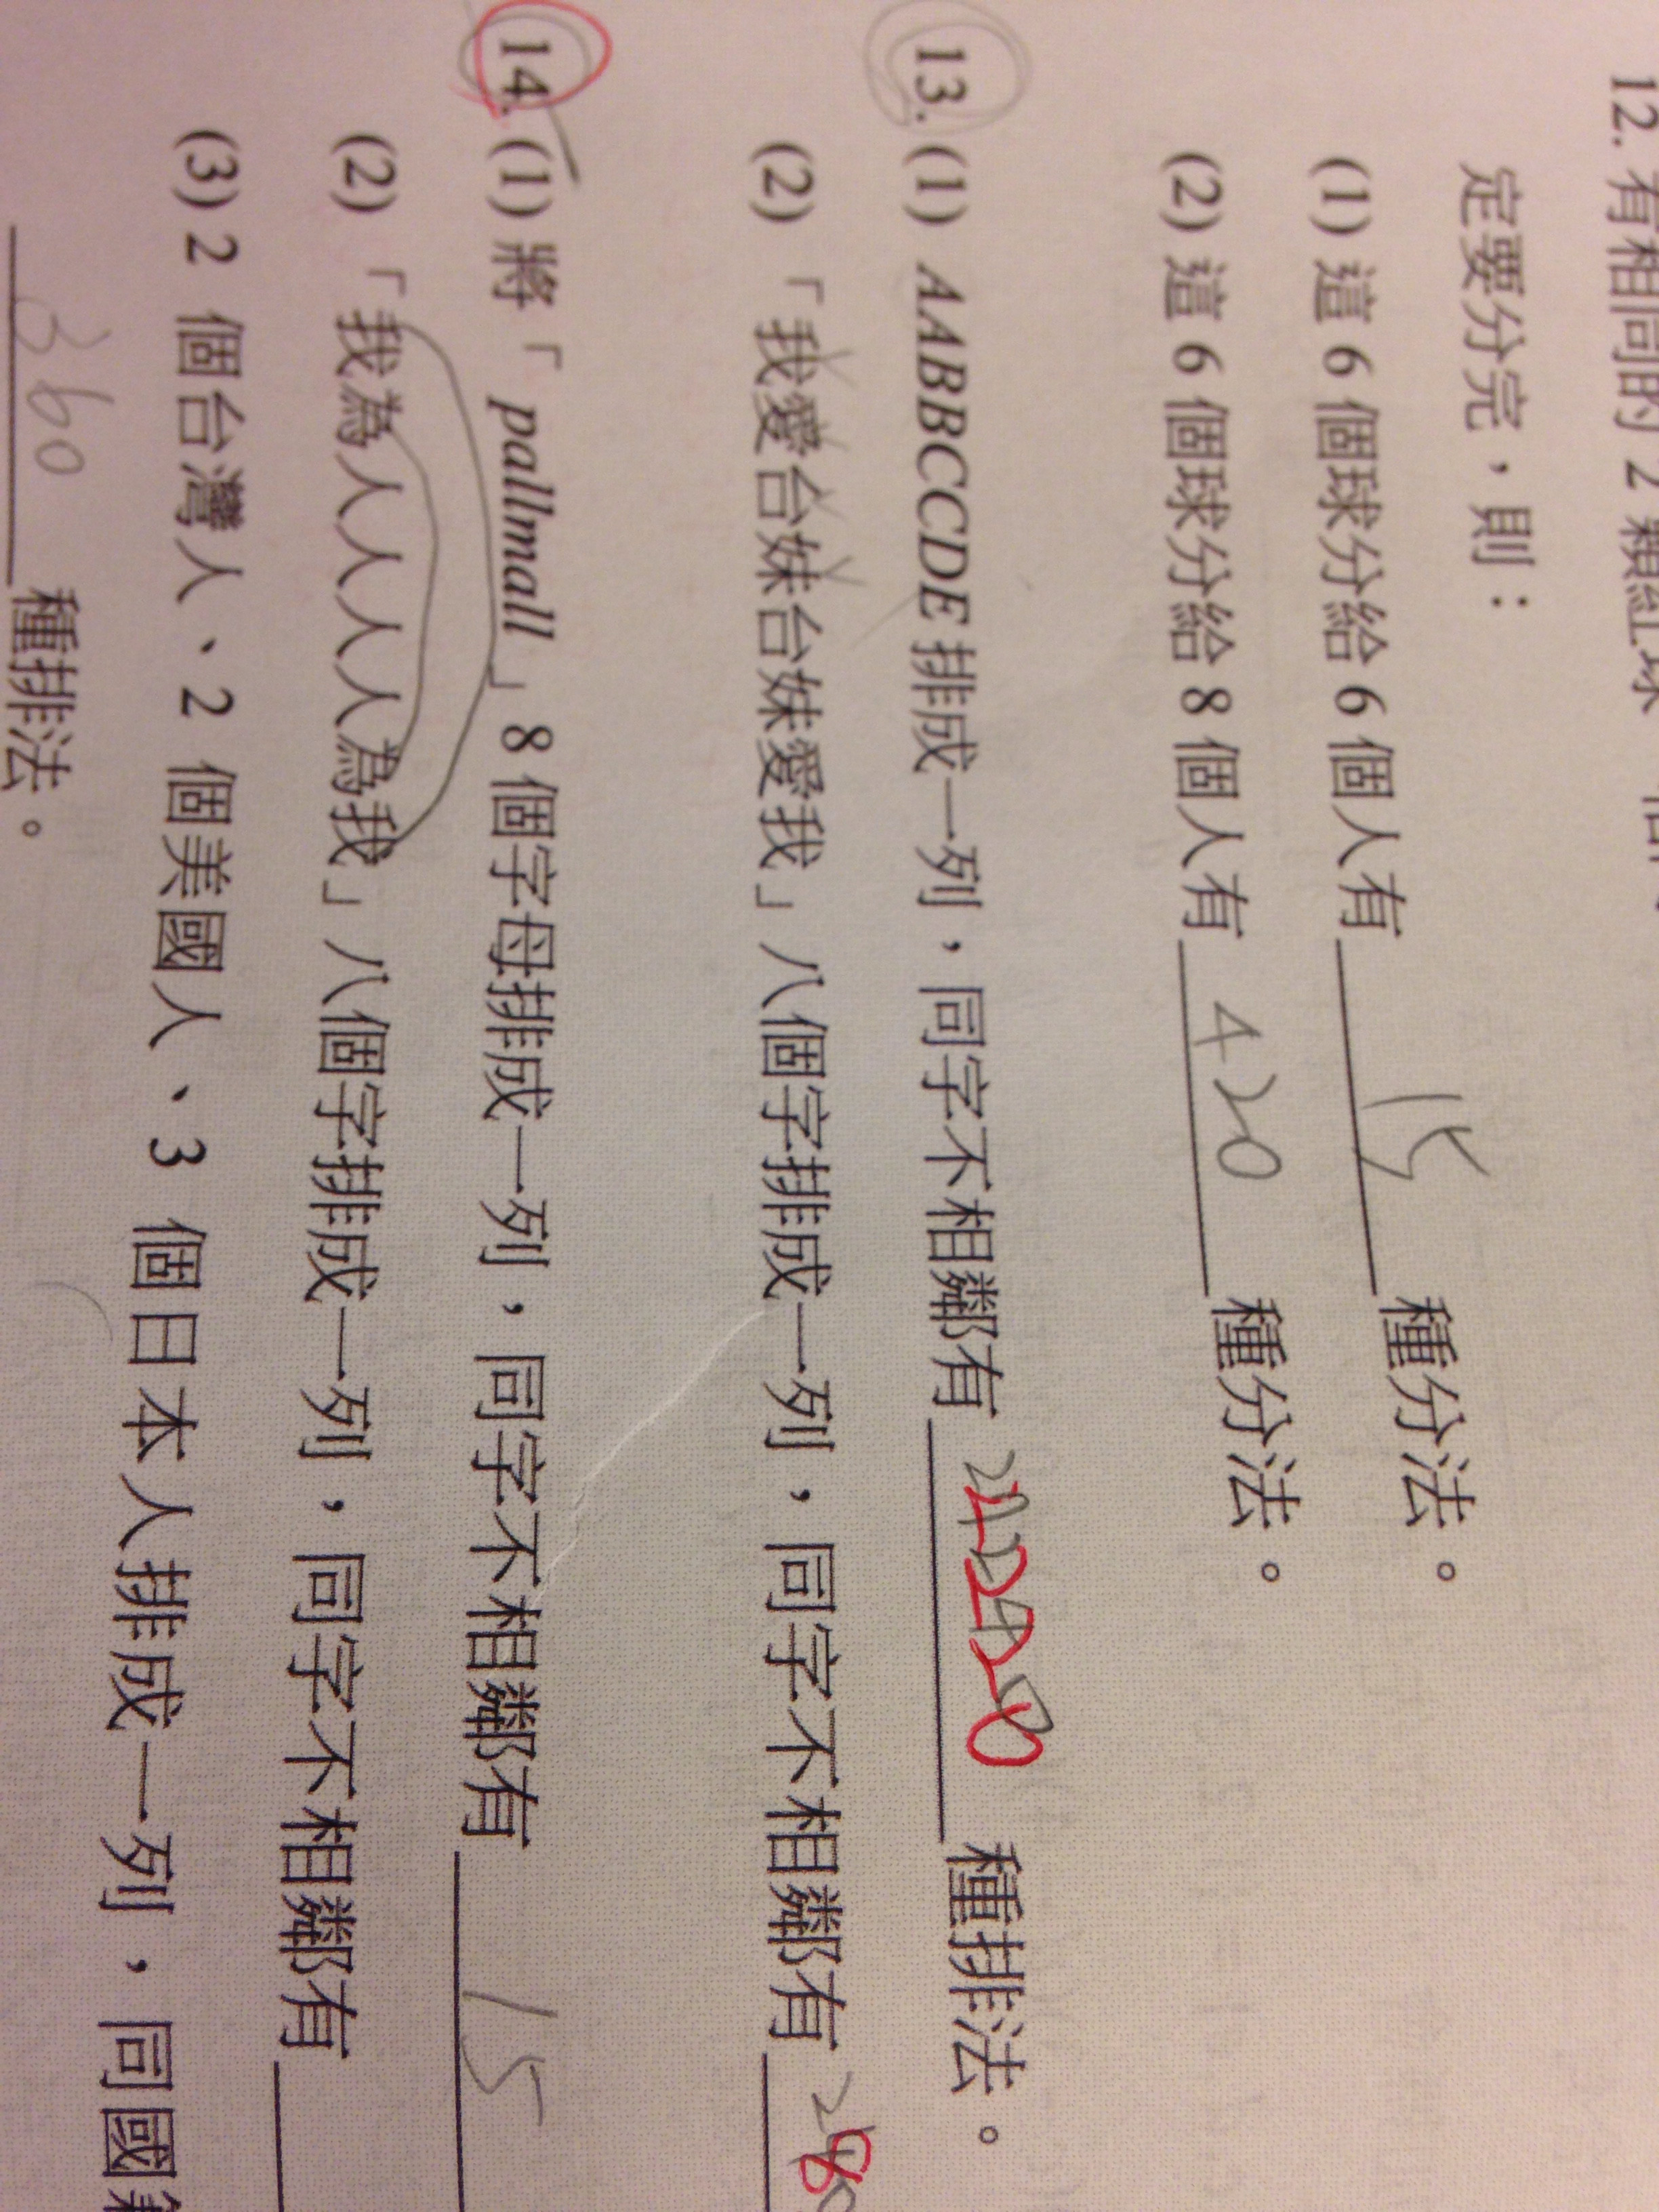 12. 有相同的 2 顆紅球
定要分完，則：
(1) 這 6 個球分給 6 個人有 15 種分法。
(2) 這 6 個球分給 8 個人有 420 種分法。
13. (1) AABBCCDE 排成一列，同字不相鄰有 種排法。
(2) 「我愛台妹台妹愛我」八個字排成一列，同字不相鄰有
14. (1) 將「pallmall」8 個字母排成一列，同字不相鄰有 15
(2) 「我為人人人人為我」八個字排成一列，同字不相鄰有
(3) 2 個台灣人、2 個美國人、3 個日本人排成一列，同國
360 種排法。